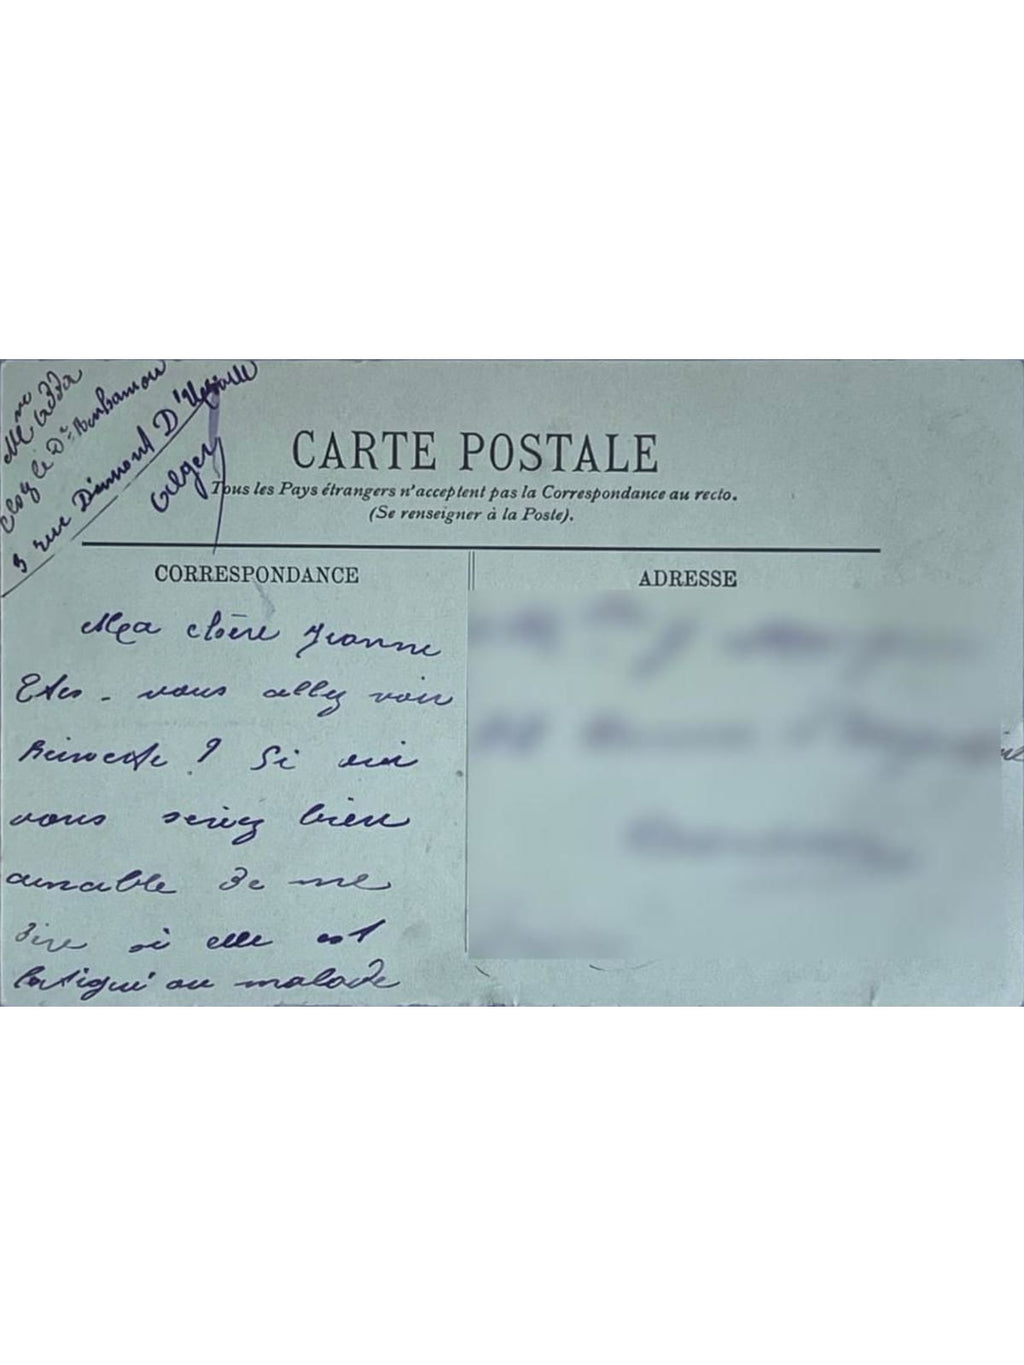 Mme Adda
chez le Dr
3 rue Dumont D'Urville
Alger
CARTE POSTALE
Tous les Pays étrangers n'acceptent pas la Correspondance au recto.
(Se renseigner à la Poste).
CORRESPONDANCE
ADRESSE
Ma chère Jeanne
Etes-vous allez voir
? Si oui
vous seriez bien
aimable de me
dire si elle est
fatigué ou malade